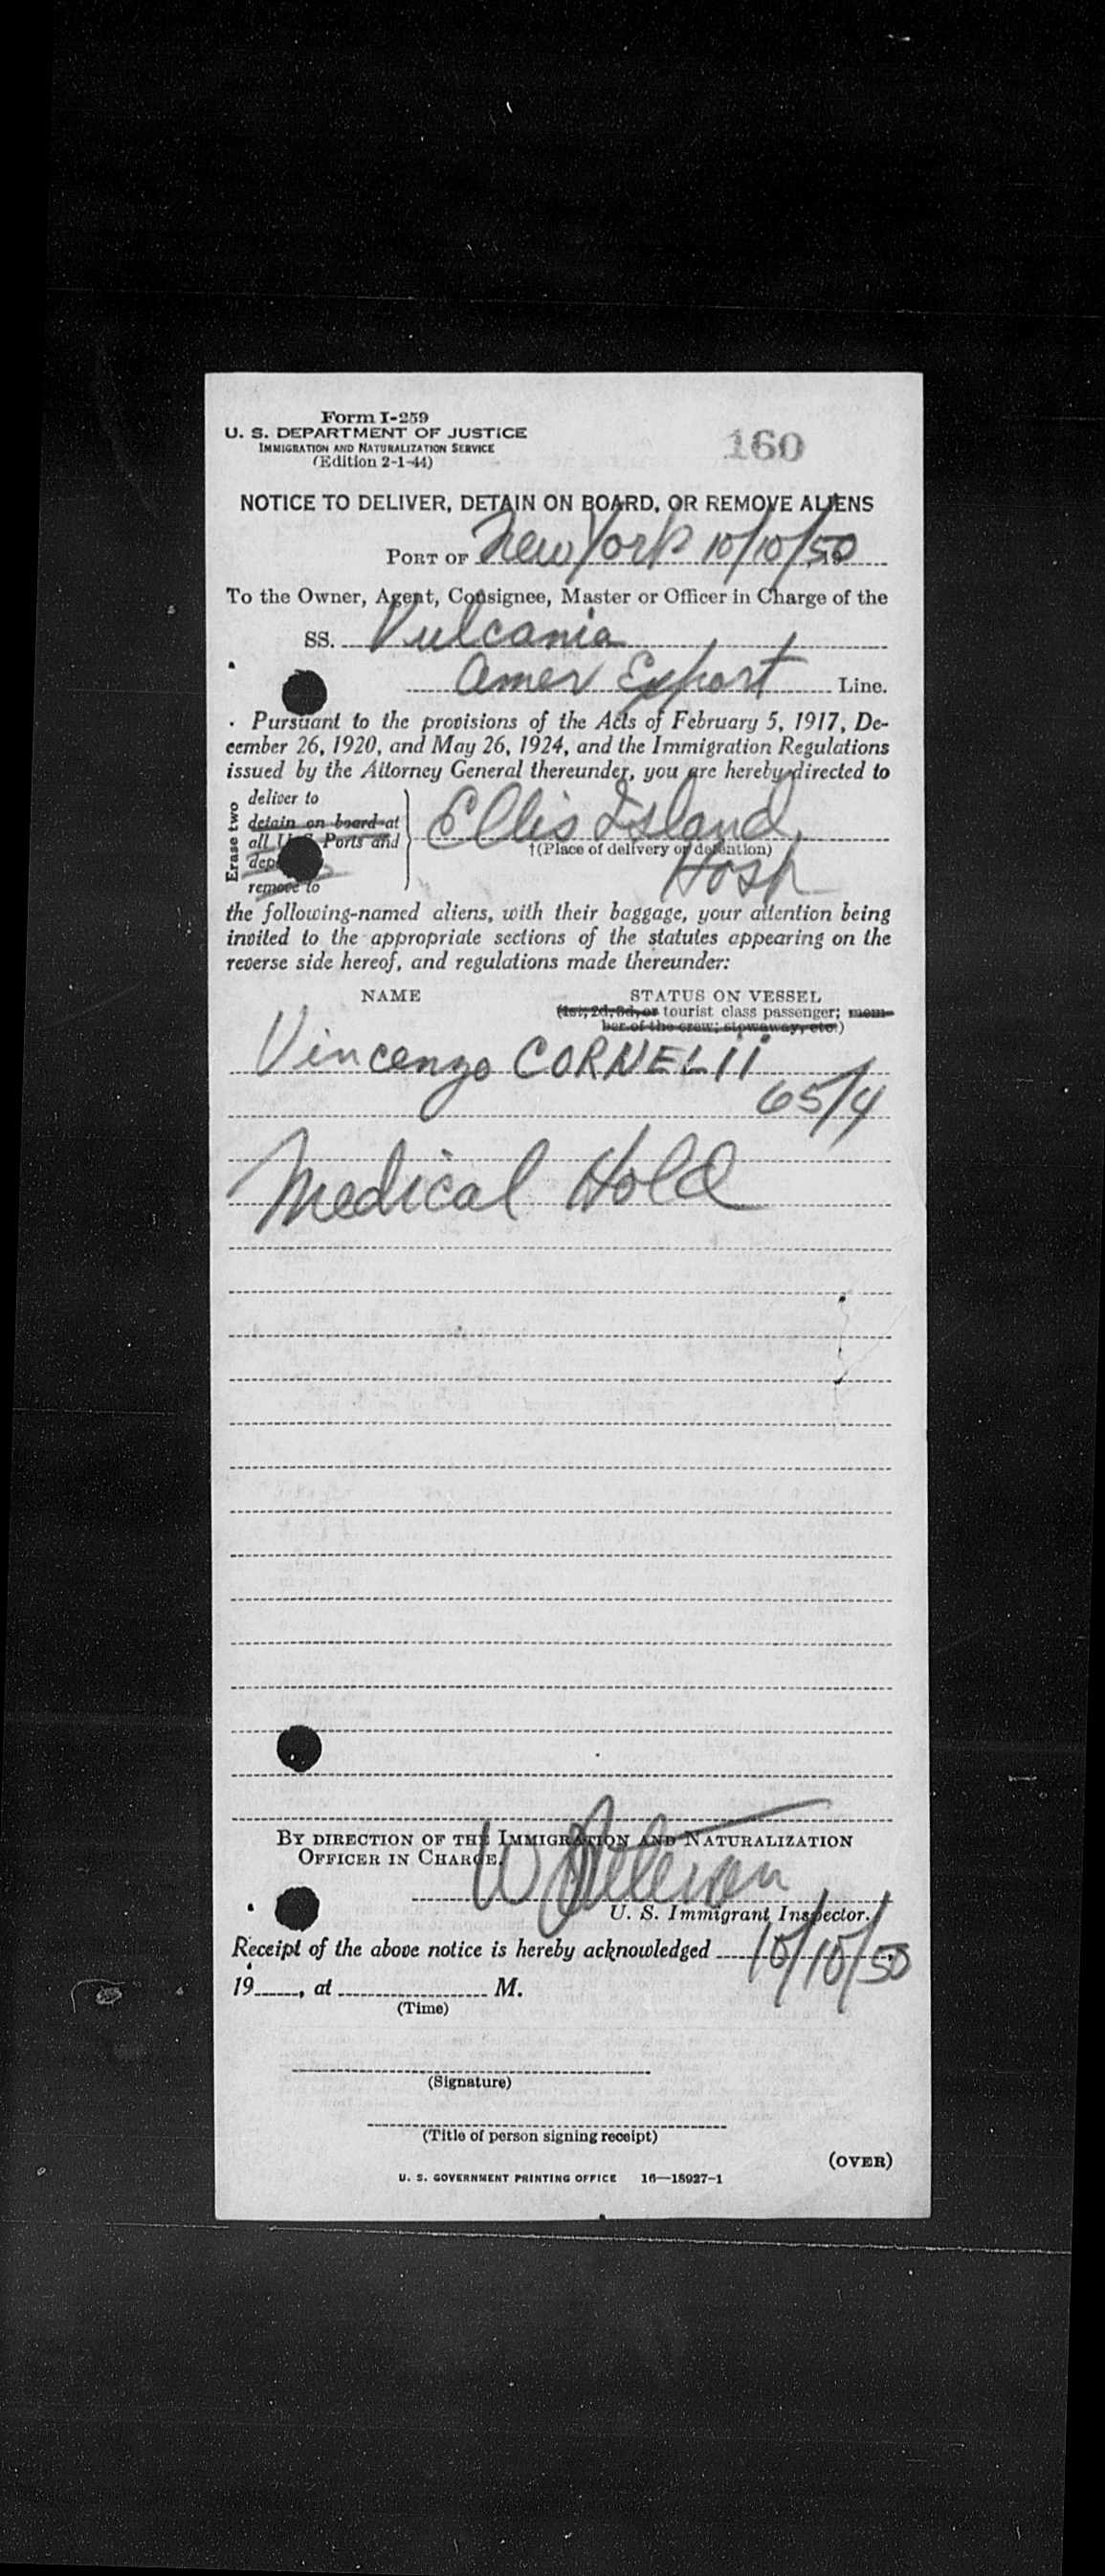 Form I-259
U. S. DEPARTMENT OF JUSTICE
IMMIGRATION AND NATURALIZATION SERVICE
(Edition 2-1-44)
160
NOTICE TO DELIVER, DETAIN ON BOARD, OR REMOVE ALIENS
PORT OF New York 10/10/50
To the Owner, Agent, Consignee, Master or Officer in Charge of the
SS. Vulcania
Amer Export Line.
Pursuant to the provisions of the Acts of February 5, 1917, De-
cember 26, 1920, and May 26, 1924, and the Immigration Regulations
issued by the Attorney General thereunder, you are hereby directed to
Erase two
deliver to
detain on board at
all U.S. Ports and
remove to
Ellis Island
†(Place of delivery or detention)
Hosp
the following-named aliens, with their baggage, your attention being
invited to the appropriate sections of the statutes appearing on the
reverse side hereof, and regulations made thereunder:
NAME STATUS ON VESSEL
(1st, 2d, 3d, or tourist class passenger; mem-
ber of the crew; stowaway, etc.)
Vincenzo CORNELII
65/4
Medical Hold
BY DIRECTION OF THE IMMIGRATION AND NATURALIZATION
OFFICER IN CHARGE.
U. S. Immigrant Inspector.
Receipt of the above notice is hereby acknowledged 10/10/50
19____, at ____ M.
(Time)
(Signature)
(Title of person signing receipt)
(OVER)
U. S. GOVERNMENT PRINTING OFFICE 16—18927-1